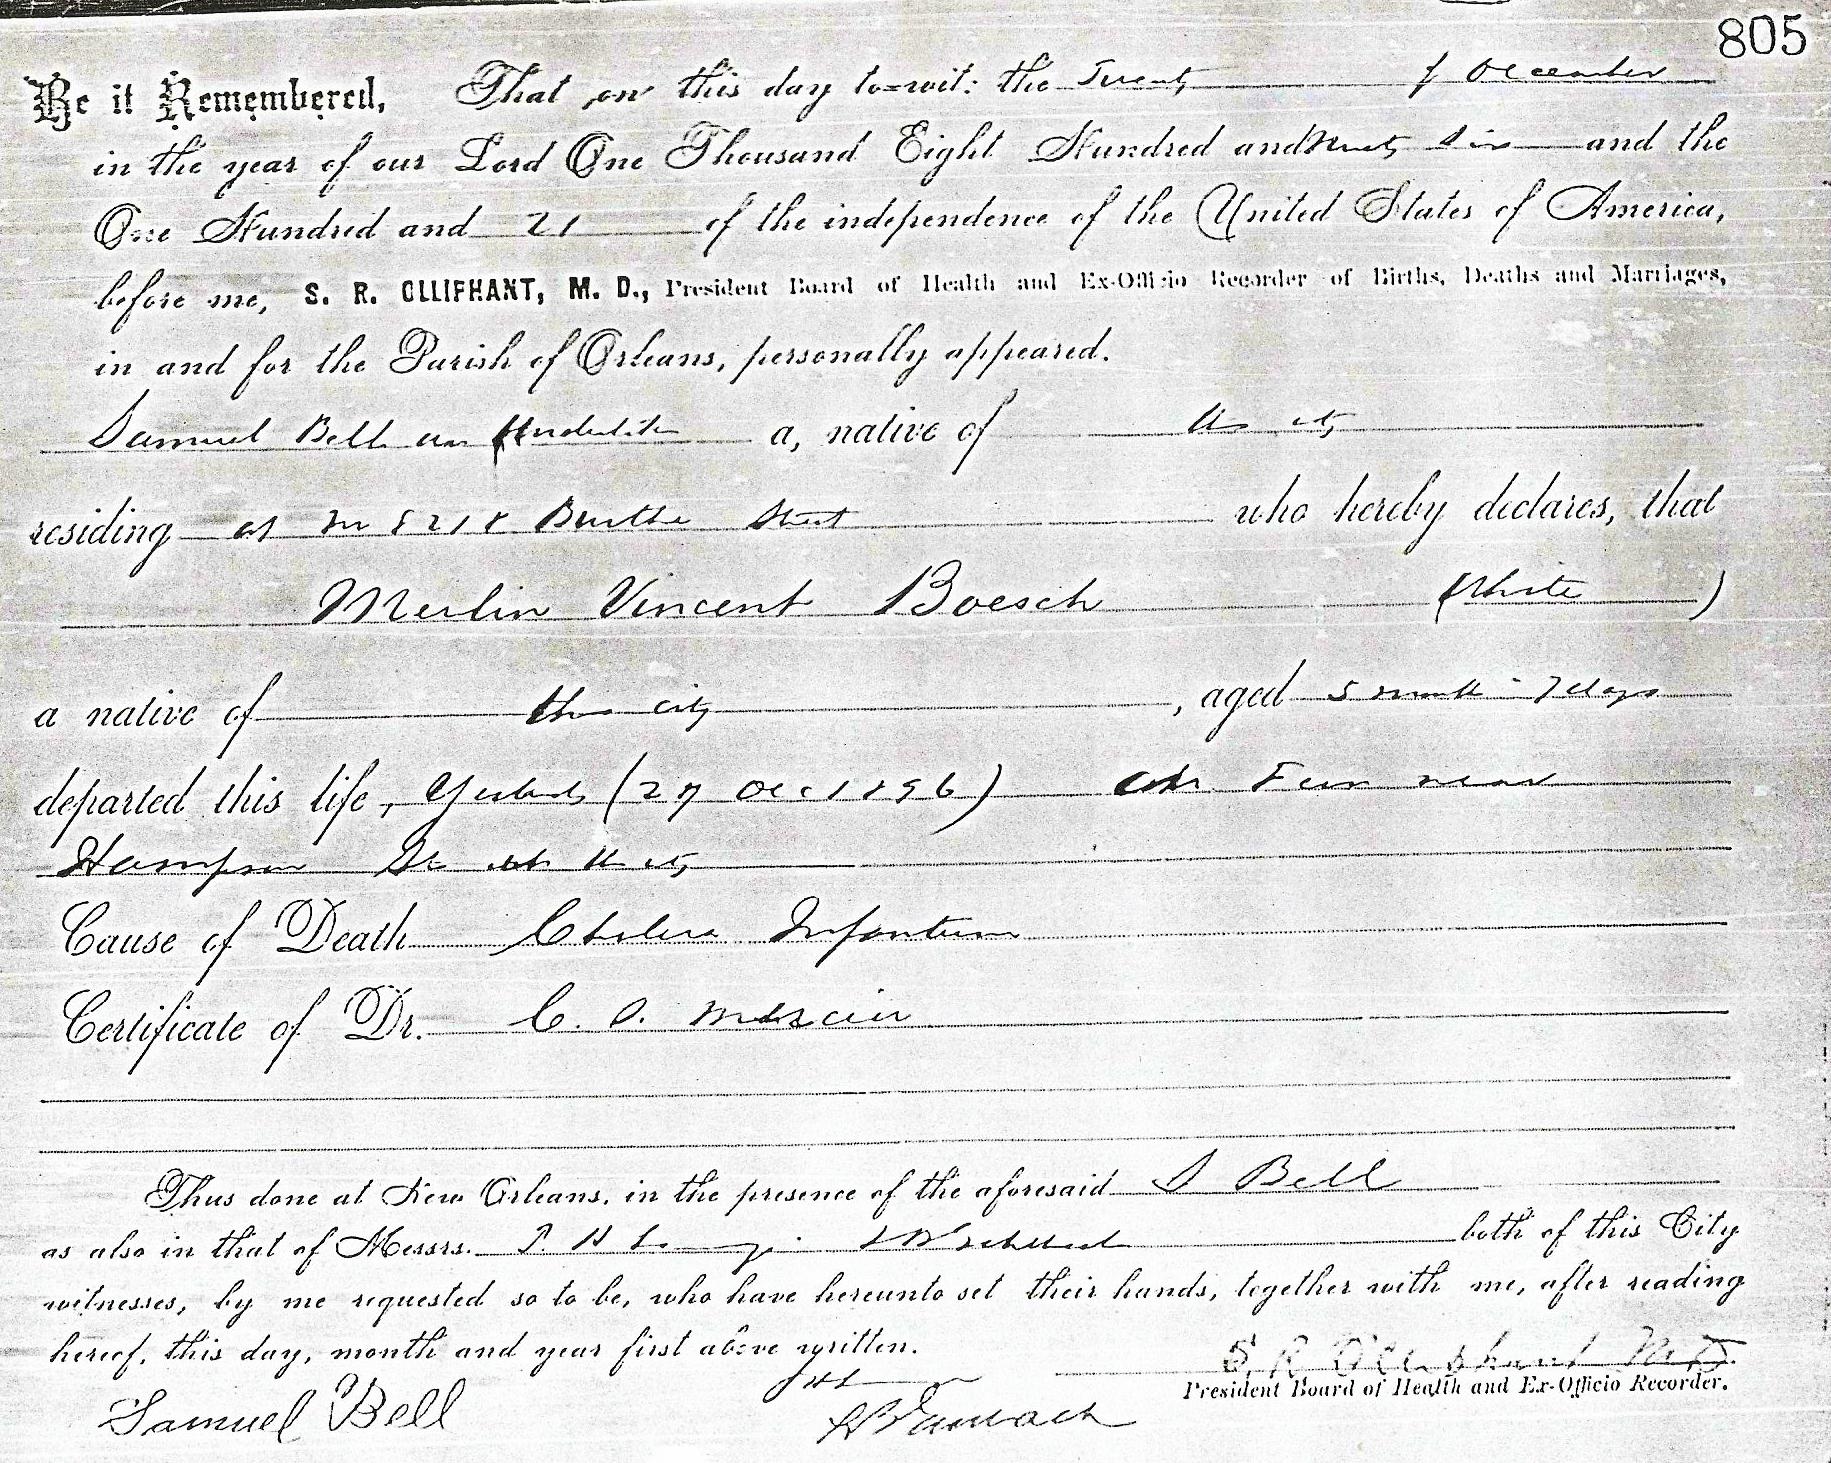 805
Be it Remembered, That on this day to=wit: the Twenty of December
in the year of our Lord One Thousand Eight Hundred and Ninety Six and the
One Hundred and 21 of the independence of the United States of America,
before me, S. R. OLLIPHANT, M. D., President Board of Health and Ex-Officio Recorder of Births, Deaths and Marriages,
in and for the Parish of Orleans, personally appeared.
Samuel Bell an Undertaker a, native of this city
residing at No Burthe Street who hereby declares, that
Merlin Vincent Boesch (White)
a native of this city, aged 5 months - 7 days
departed this life, Yesterday ( Dec 1896) near
Hampson St this city
Cause of Death Cholera Infantum
Certificate of Dr. C. Mercier
Thus done at New Orleans, in the presence of the aforesaid S Bell
as also in that of Messrs. both of this City
witnesses, by me requested so to be, who have hereunto set their hands, together with me, after reading
hereof, this day, month and year first above written.
S. R. Olliphant M.D.
President Board of Health and Ex-Officio Recorder.
Samuel Bell